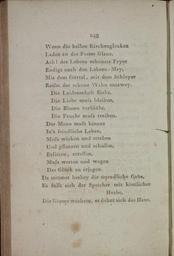 Wenn die hellen Kirchenglocken
Laden zu des Festes Glanz.
Ach! des Lebens schönste Feyer
Endigt auch den Lebens-May,
Mit dem Gürtel, mit dem Schleyer
Reißt der schöne Wahn entzwey.
Die Leidenschaft flieht,
Die Liebe muß bleiben,
Die Blume verblüht,
Die Frucht muß treiben.
Der Mann muß hinaus
In's feindliche Leben,
Muß wirken und streben
Und pflanzen und schaffen,
Erlisten, erraffen,
Muß wetten und wagen
Das Glück zu erjagen.
Da strömet herbey die unendliche Gabe,
Es füllt sich der Speicher mit köstlicher
Habe,
Die Räume wachsen, es dehnt sich das Haus.